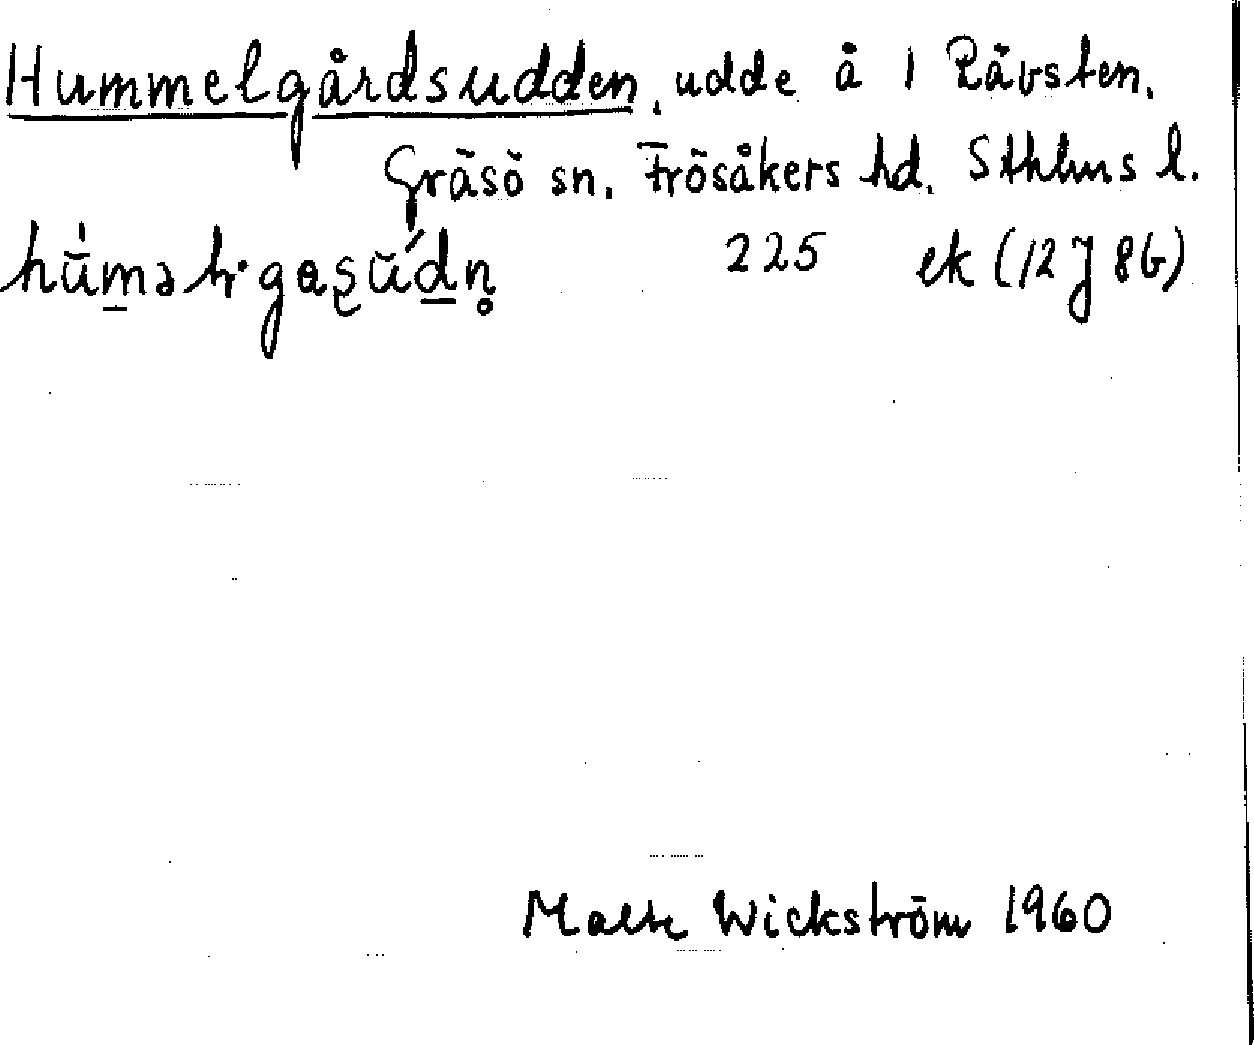 Hummelgårdsudden, udde å 1 Rävsten.
Gräsö sn. Frösåkers hd. Sthlms l.
225 ek (12J 8b)
Malte Wickström 1960